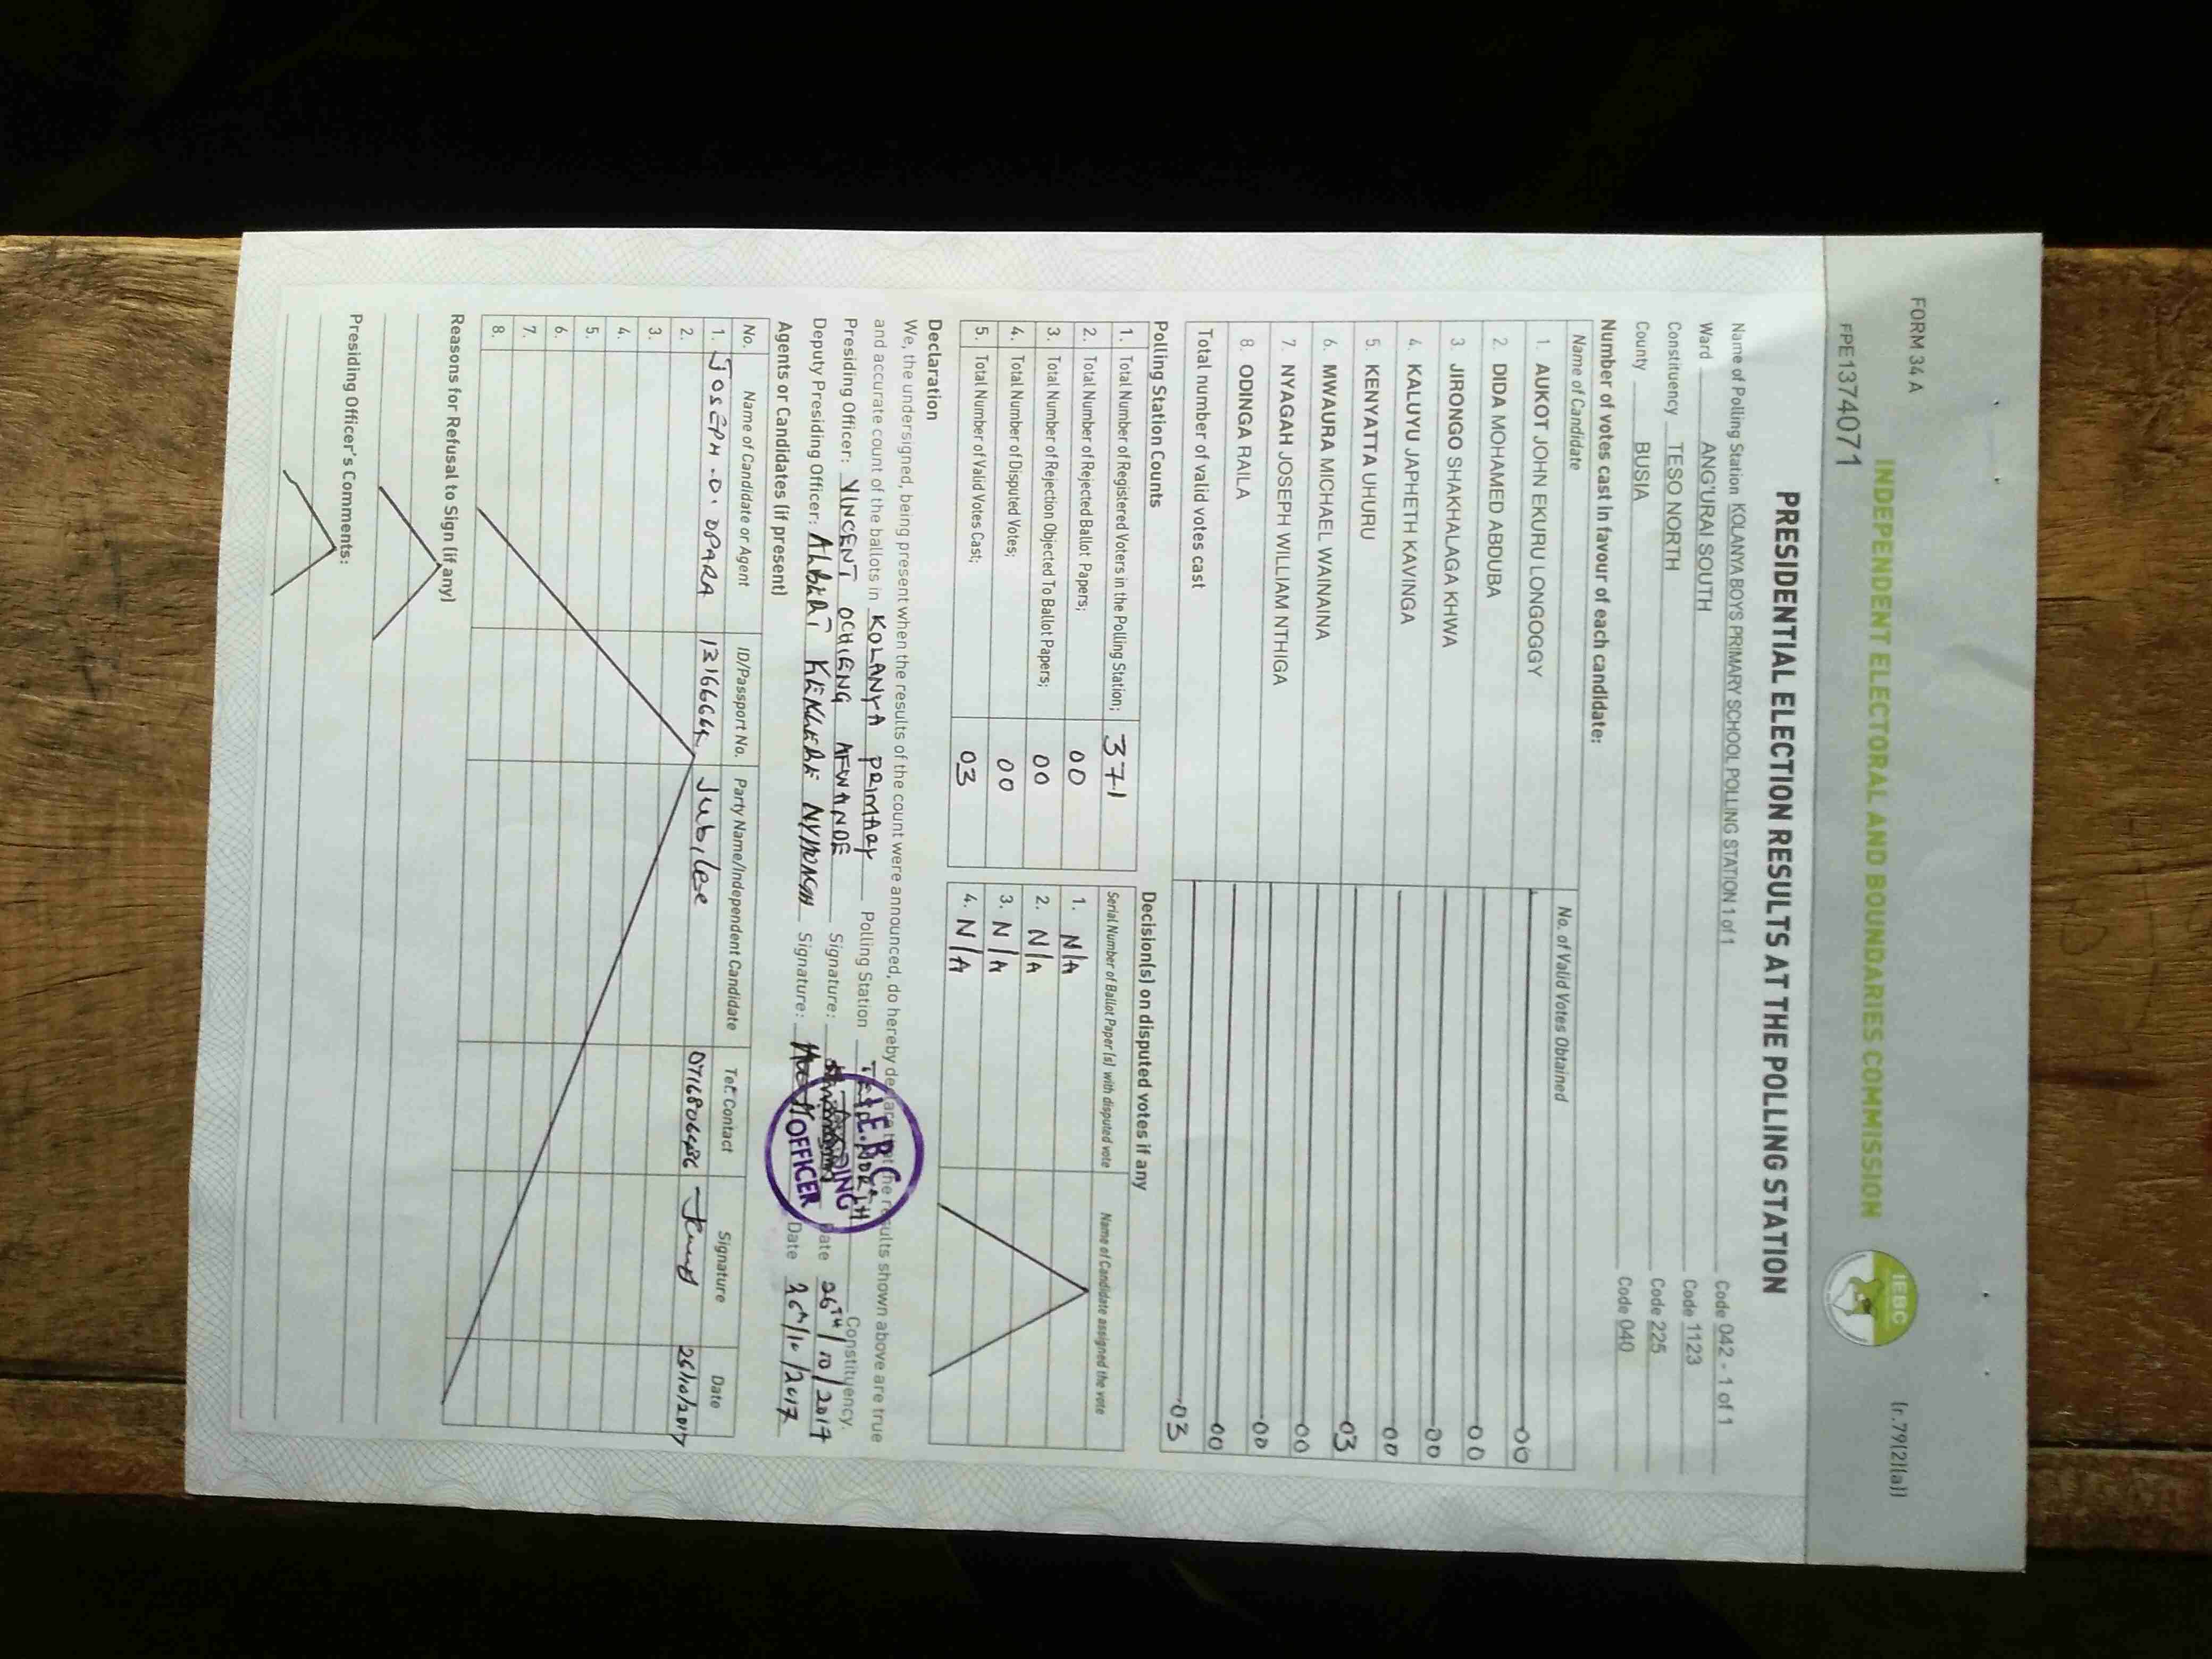 FORM 34 A
(r.79(2)(a))
INDEPENDENT ELECTORAL AND BOUNDARIES COMMISSION
IEBC
FPE1374071
PRESIDENTIAL ELECTION RESULTS AT THE POLLING STATION
Name of Polling Station KOLANYA BOYS PRIMARY SCHOOL POLLING STATION 1 of 1 Code 042 - 1 of 1
Ward ANG'URAI SOUTH Code 1123
Constituency TESO NORTH Code 225
County BUSIA Code 040
Number of votes cast in favour of each candidate:
Name of Candidate No. of Valid Votes Obtained
1. AUKOT JOHN EKURU LONGOGGY 00
2. DIDA MOHAMED ABDUBA 00
3. JIRONGO SHAKHALAGA KHWA 00
4. KALUYU JAPHETH KAVINGA 00
5. KENYATTA UHURU 03
6. MWAURA MICHAEL WAINAINA 00
7. NYAGAH JOSEPH WILLIAM NTHIGA 00
8. ODINGA RAILA 00
Total number of valid votes cast 03
Polling Station Counts
1. Total Number of Registered Voters in the Polling Station; 371
2. Total Number of Rejected Ballot Papers; 00
3. Total Number of Rejection Objected To Ballot Papers; 00
4. Total Number of Disputed Votes; 00
5. Total Number of Valid Votes Cast; 03
Decision(s) on disputed votes if any
Serial Number of Ballot Paper (s) with disputed vote Name of Candidate assigned the vote
1. N/A
2. N/A
3. N/A
4. N/A
Declaration
We, the undersigned, being present when the results of the count were announced, do hereby declare that the results shown above are true
and accurate count of the ballots in KOLANYA PRIMARY Polling Station Constituency.
Presiding Officer: VINCENT OCHIENG AFWANDE Signature: Date 26TH/10/2017
Deputy Presiding Officer: Signature: Date 26th/10/2017
I.E.B.C
OFFICER
Agents or Candidates (if present)
No. Name of Candidate or Agent ID/Passport No. Party Name/Independent Candidate Tel: Contact Signature Date
1. JOSEPH .O. OPARA Jubilee 0716806486 26/10/2017
2.
3.
4.
5.
6.
7.
8.
Reasons for Refusal to Sign (if any)
Presiding Officer's Comments: